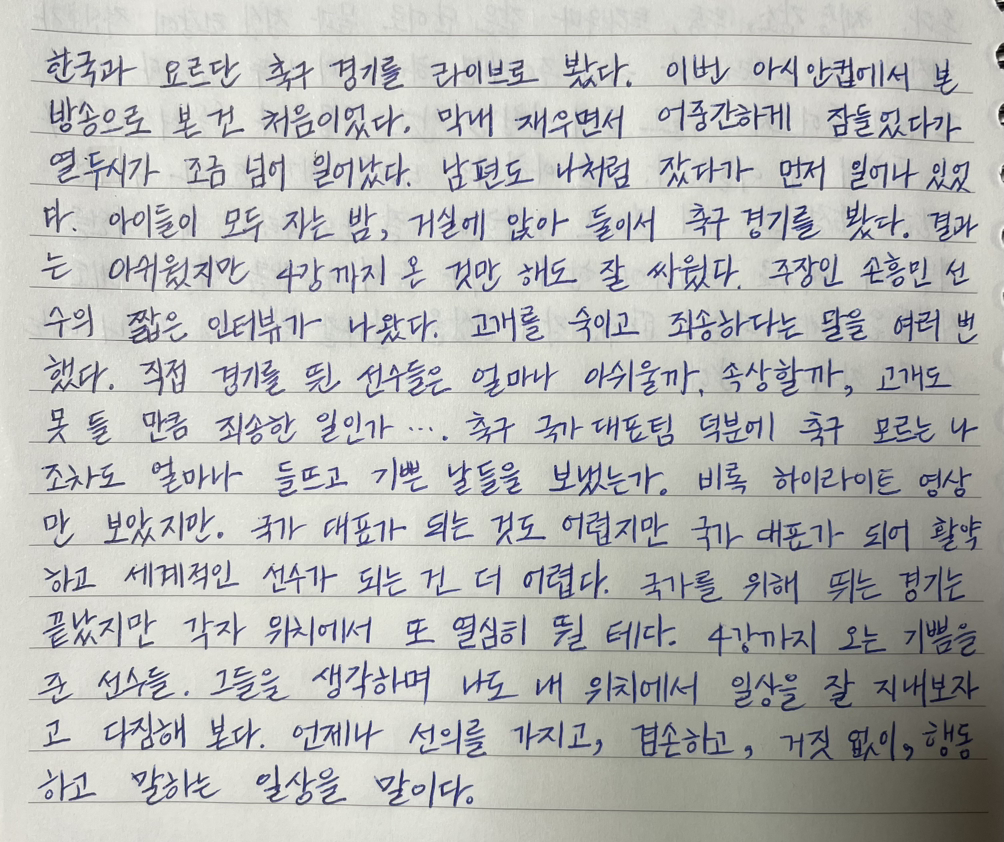 한국과 요르단 축구 경기를 라이브로 봤다. 이번 아시안컵에서 본
방송으로 본 건 처음이었다. 막내 재우면서 어중간하게 잠들었다가
열두시가 조금 넘어 일어났다. 남편도 나처럼 잤다가 먼저 일어나 있었
다. 아이들이 모두 자는 밤, 거실에 앉아 둘이서 축구 경기를 봤다. 결과
는 아쉬웠지만 4강까지 온 것만 해도 잘 싸웠다. 주장인 손흥민 선
수의 짧은 인터뷰가 나왔다. 고개를 숙이고 죄송하다는 말을 여러 번
했다. 직접 경기를 뛴 선수들은 얼마나 아쉬울까, 속상할까, 고개도
못 들 만큼 죄송한 일인가 .... 축구 국가대표팀 덕분에 축구 모르는 나
조차도 얼마나 들뜨고 기쁜 날들을 보냈는가. 비록 하이라이트 영상
만 보았지만. 국가 대표가 되는 것도 어렵지만 국가 대표가 되어 활약
하고 세계적인 선수가 되는 건 더 어렵다. 국가를 위해 뛰는 경기는
끝났지만 각자 위치에서 또 열심히 뛸 테다. 4강까지 오는 기쁨을
준 선수들. 그들을 생각하며 나도 내 위치에서 일상을 잘 지내보자
고 다짐해 본다. 언제나 선의를 가지고, 겸손하고, 거짓 없이, 행동
하고 말하는 일상을 말이다.